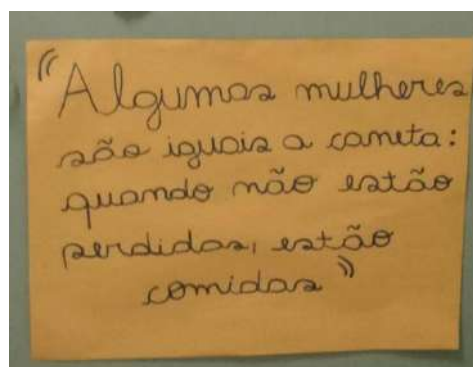 "Algumas mulheres
são iguais a caneta:
quando não estão
perdidas, estão
comidas"